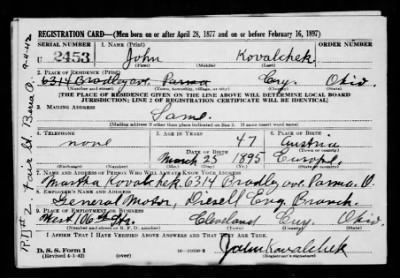 REGISTRATION CARD—(Men born on or after April 28, 1877 and on or before February 16, 1897)
SERIAL NUMBER 1. NAME (Print) ORDER NUMBER
U 2453 John Kovalchek
(First) (Middle) (Last)
2. PLACE OF RESIDENCE (Print)
6314 Bradley ave. Parma Cuy. Ohio.
(Number and street) (Town, township, village, or city) (County) (State)
[THE PLACE OF RESIDENCE GIVEN ON THE LINE ABOVE WILL DETERMINE LOCAL BOARD
JURISDICTION; LINE 2 OF REGISTRATION CERTIFICATE WILL BE IDENTICAL]
3. MAILING ADDRESS
Same.
4. TELEPHONE 5. AGE IN YEARS 6. PLACE OF BIRTH
none 47 Austria
DATE OF BIRTH (Town or county)
March 25 1895 Europe.
(Mo.) (Day) (Yr.) (State or country)
7. NAME AND ADDRESS OF PERSON WHO WILL ALWAYS KNOW YOUR ADDRESS
Martha Kovalchek 6314 Bradley ave. Parma. O.
8. EMPLOYER'S NAME AND ADDRESS
General Motor, Diesell Eng. Branch.
9. PLACE OF EMPLOYMENT OR BUSINESS
West 106 St. Cleveland Cuy. Ohio.
(Number and street or R. F. D. number) (Town) (County) (State)
I AFFIRM THAT I HAVE VERIFIED ABOVE ANSWERS AND THAT THEY ARE TRUE.
D. S. S. Form 1
(Revised 4-1-42) John Kovalchek
(Registrant's signature)
Fair St Berea O. 9-4-42